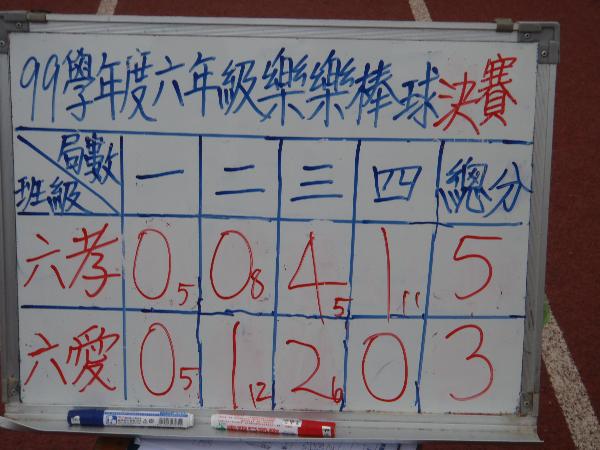 99學年度六年級樂樂棒球決賽
局數 一 二 三 四 總分
班級
六孝 0 5 0 8 4 5 1 11 5
六愛 0 5 1 12 2 6 0 3